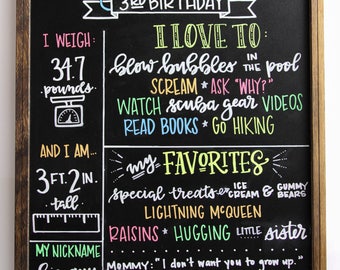 3RD BIRTHDAY
I WEIGH:
34.7
pounds
AND I AM...
3 FT. 2 IN.
tall
MY NICKNAME
I LOVE TO:
blow bubbles IN THE pool
SCREAM * ASK "WHY?"
WATCH scuba gear VIDEOS
READ BOOKS * GO HIKING
my FAVORITES
special treats ICE CREAM & GUMMY BEARS
LIGHTNING MCQUEEN
RAISINS * HUGGING LITTLE sister
MOMMY: "I don't want you to grow up."